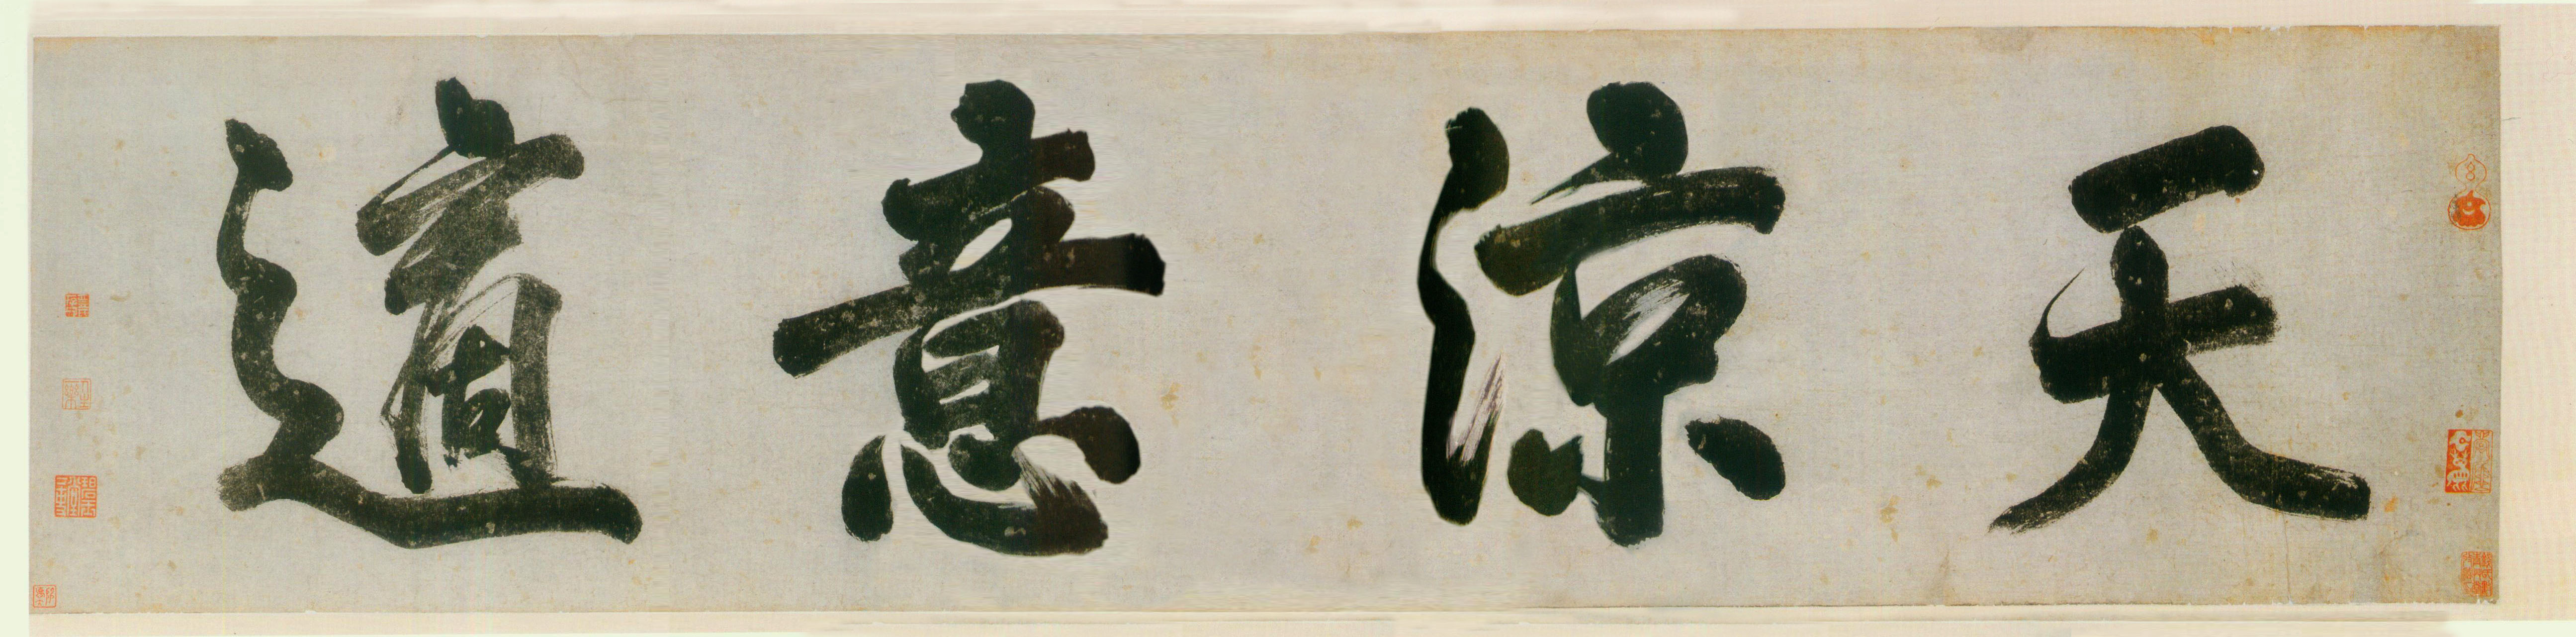 天涼意適